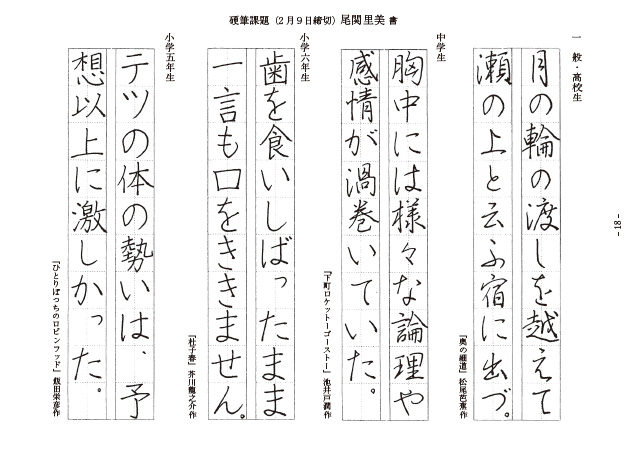 硬筆課題（2月9日締切）尾関里美 書
一般・高校生
月の輪の渡しを越えて
瀬の上と云ふ宿に出づ。
『奥の細道』松尾芭蕉作
中学生
胸中には様々な論理や
感情が渦巻いていた。
『下町ロケットーゴーストー』池井戸潤作
小学六年生
歯を食いしばったまま
一言も口をききません。
『杜子春』芥川龍之介作
小学五年生
テツの体の勢いは、予
想以上に激しかった。
『ひとりぼっちのロビンフッド』飯田栄彦作
- 18 -